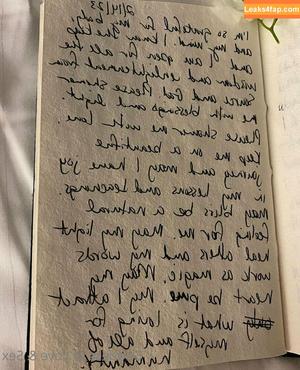 Leaks4fap.com
2/14/23
I'm so grateful for my body
and my mind. I know the
and I am open for all the
wisdom and enlightenment from
source and God. Please shower
me with blessings and light.
Please shower me with love.
Keep me on a beautiful
journey and may I have joy
in my lessons and learnings.
May bliss be a natural
feeling for me. May my light
heal others and my words
work as magic. May my
heart be pure. May I attract
what is loving for
myself and all of
humanity.
& Sex